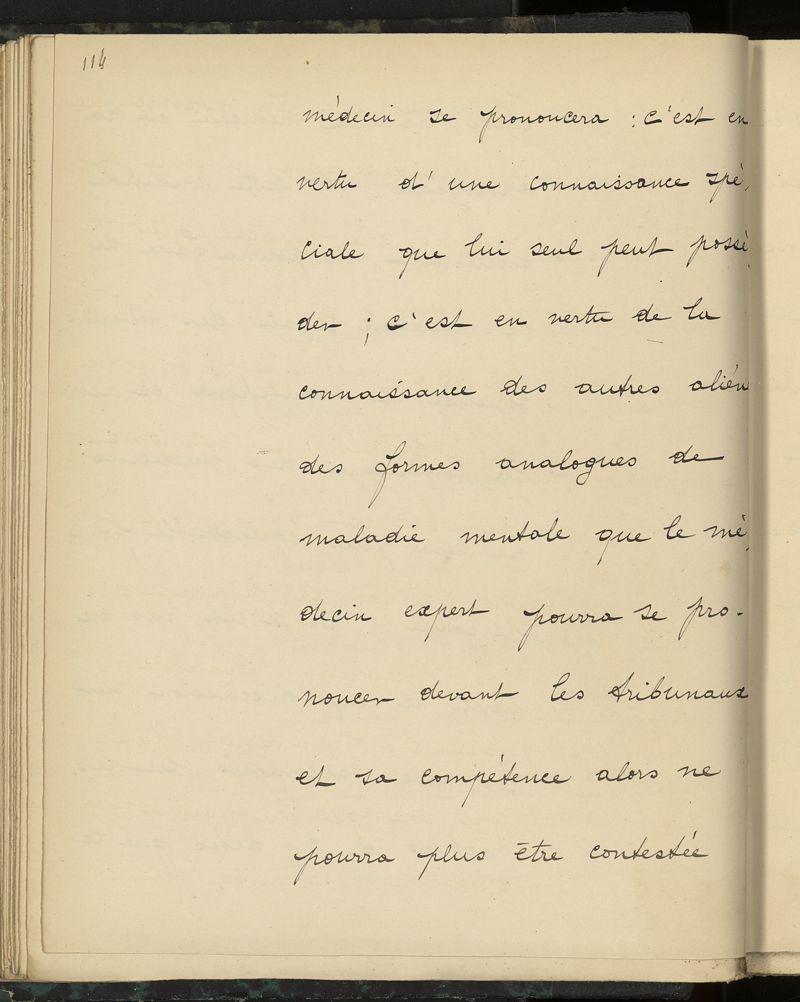 114
médecin se prononcera : c'est en
vertu d'une connaissance spé-
ciale que lui seul peut possé-
der ; c'est en vertu de la
connaissance des autres alién
des formes analogues de
maladie mentale que le mé-
decin expert pourra se pro-
noncer devant les tribunaux
et sa compétence alors ne
pourra plus être contestée